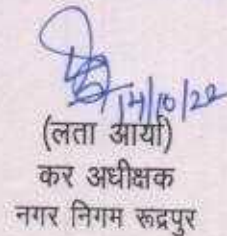 14/10/22
(लता आर्या)
कर अधीक्षक
नगर निगम रूद्रपुर